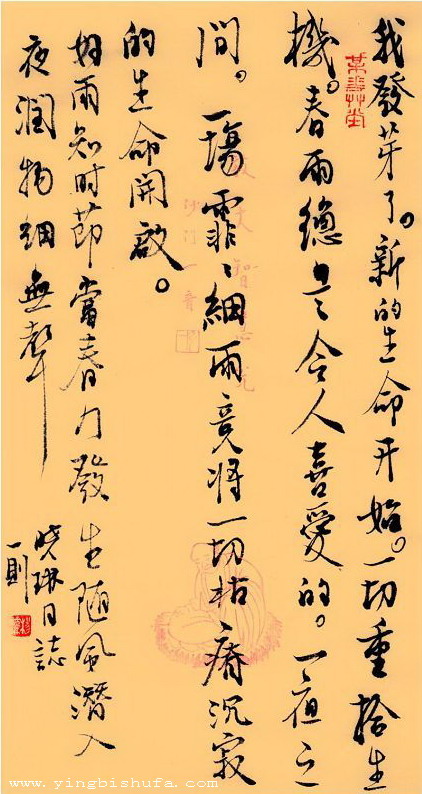 我發芽了。新的生命开始。一切重拾生
機。春雨總是令人喜愛的。一夜之
间。一場霏、細雨竟将一切枯瘠沉寂
的生命開啟。
好雨知时節當春乃發生随風潛入
夜潤物細無聲
晓琳日誌
一則
www.yingbishufa.com